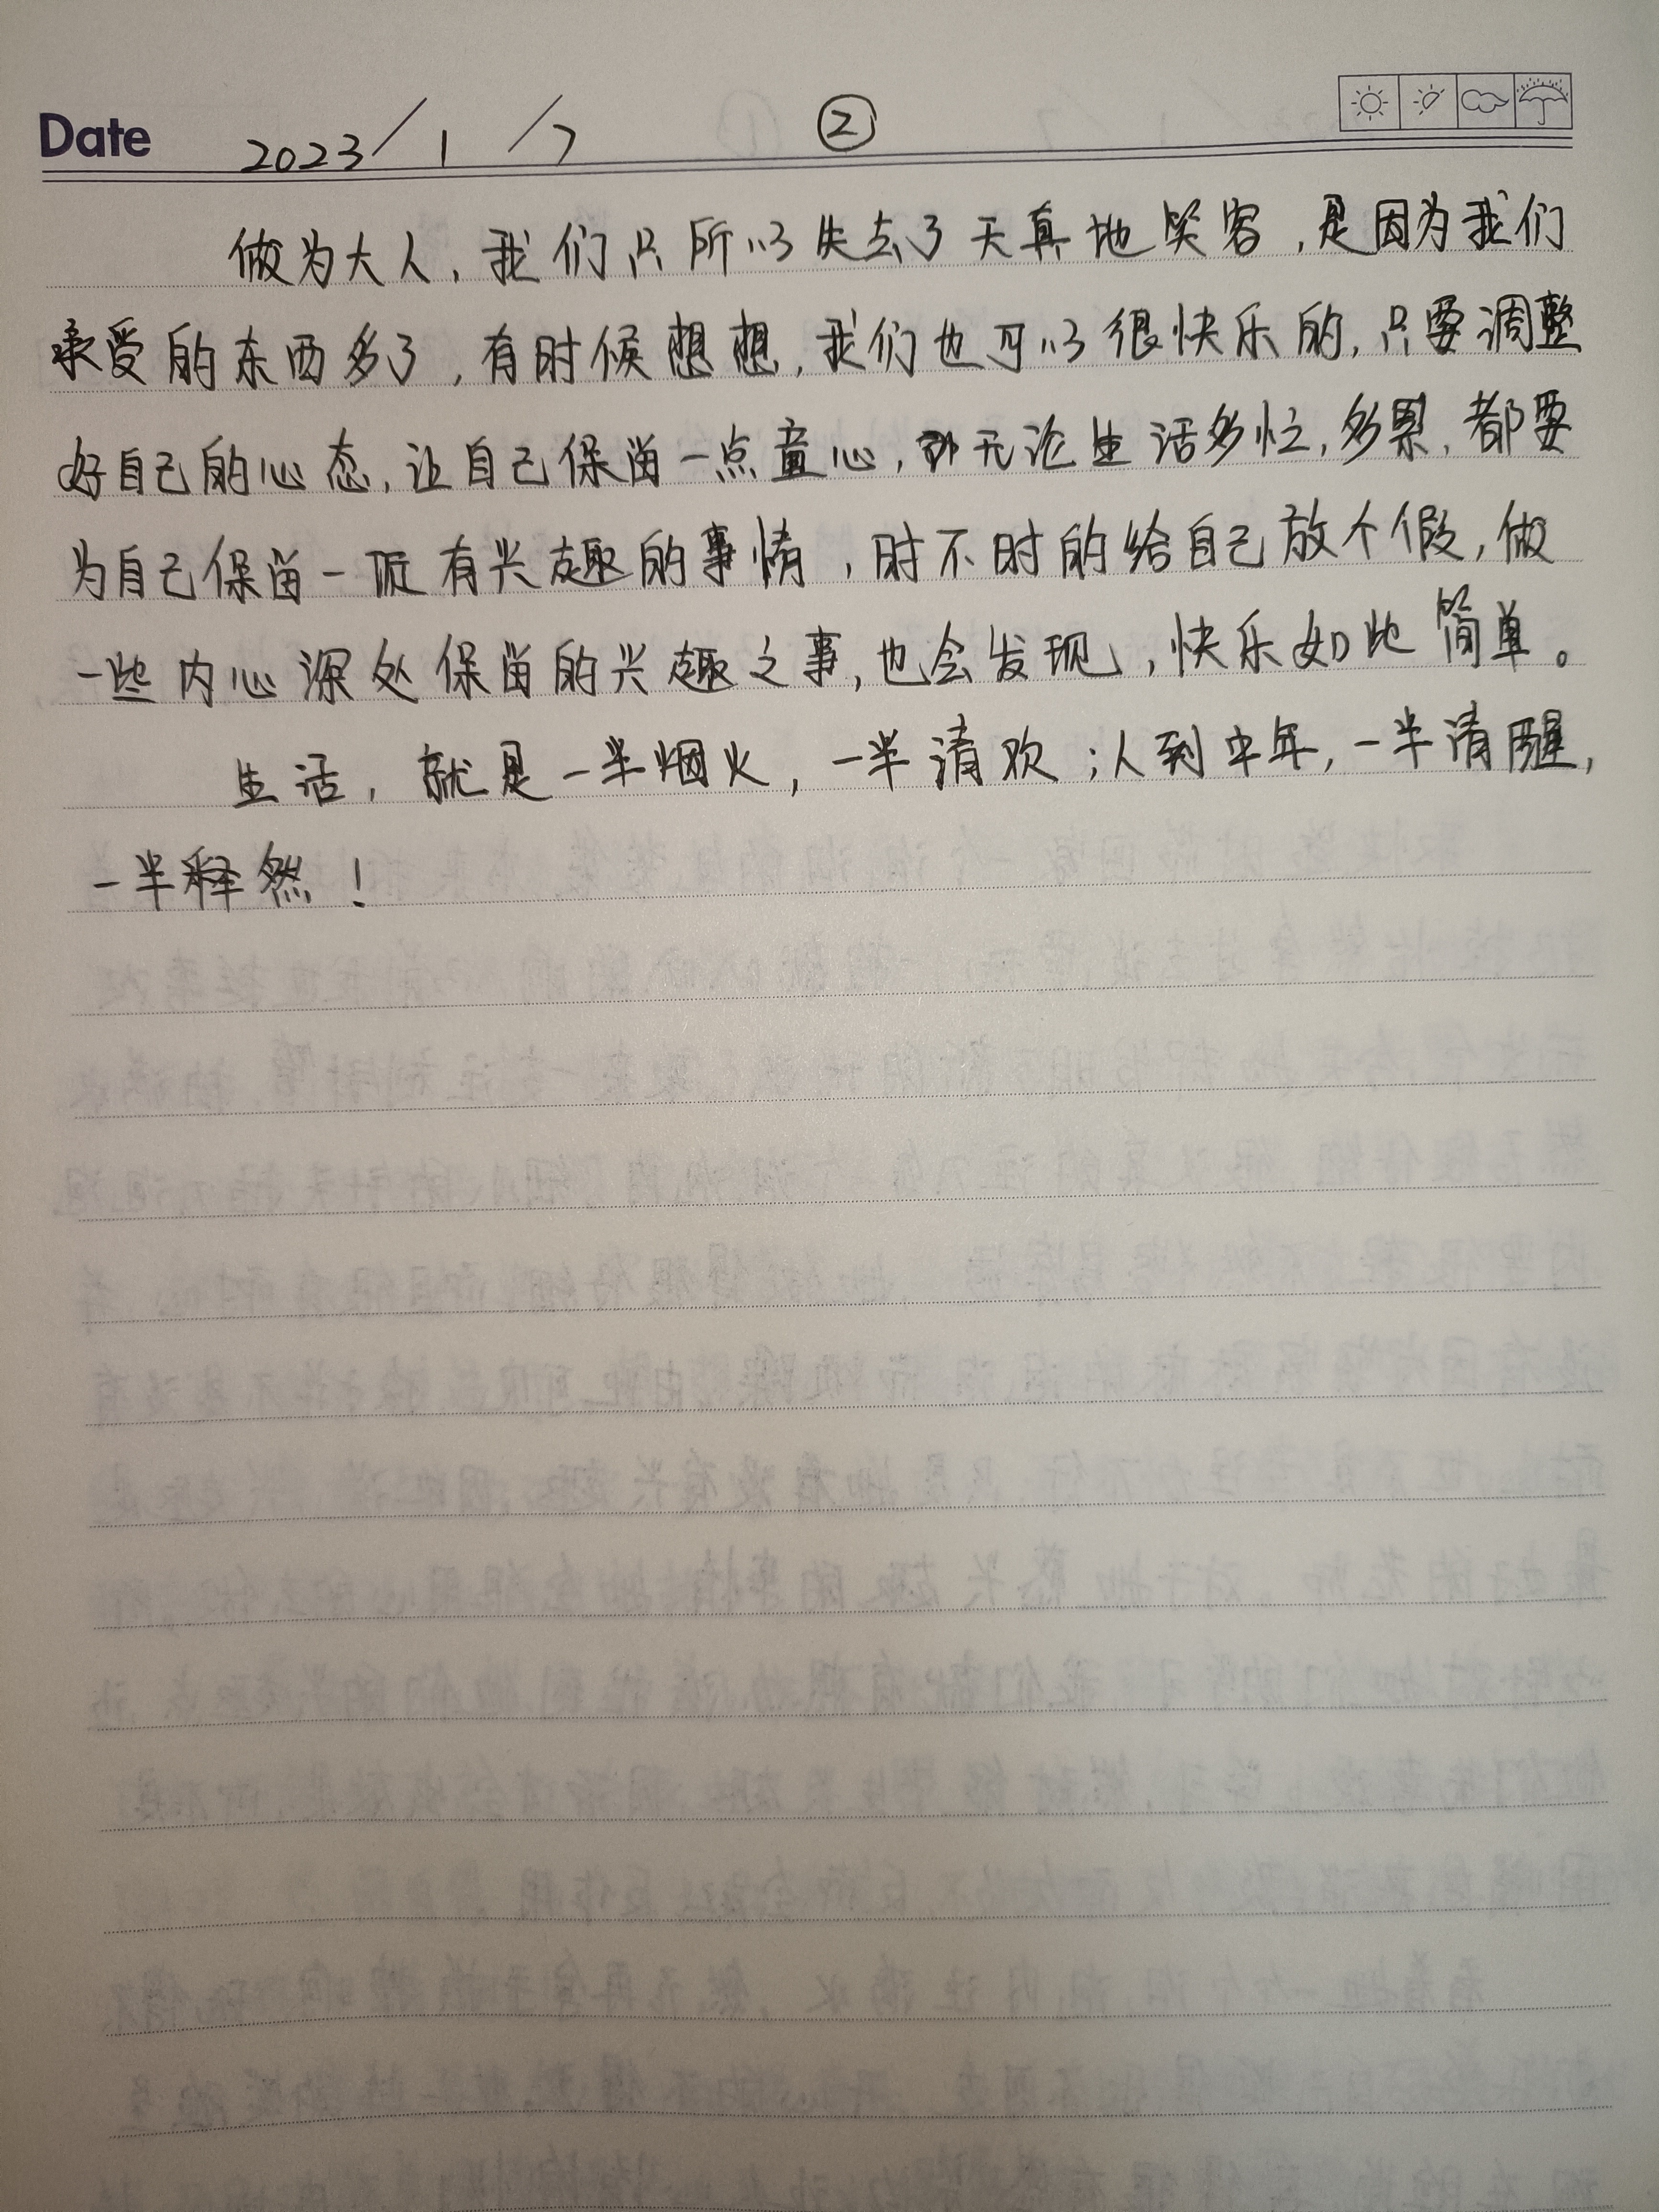 Date 2023/1/7 ②
做为大人，我们只所以失去了天真地笑容，是因为我们
承受的东西多了，有时候想想，我们也可以很快乐的，只要调整
好自己的心态，让自己保留一点童心，无论生活多忙，多累，都要
为自己保留一项有兴趣的事情，时不时的给自己放个假，做
一些内心深处保留的兴趣之事，也会发现，快乐如此简单。
生活，就是一半烟火，一半清欢；人到中年，一半清醒，
一半释然！